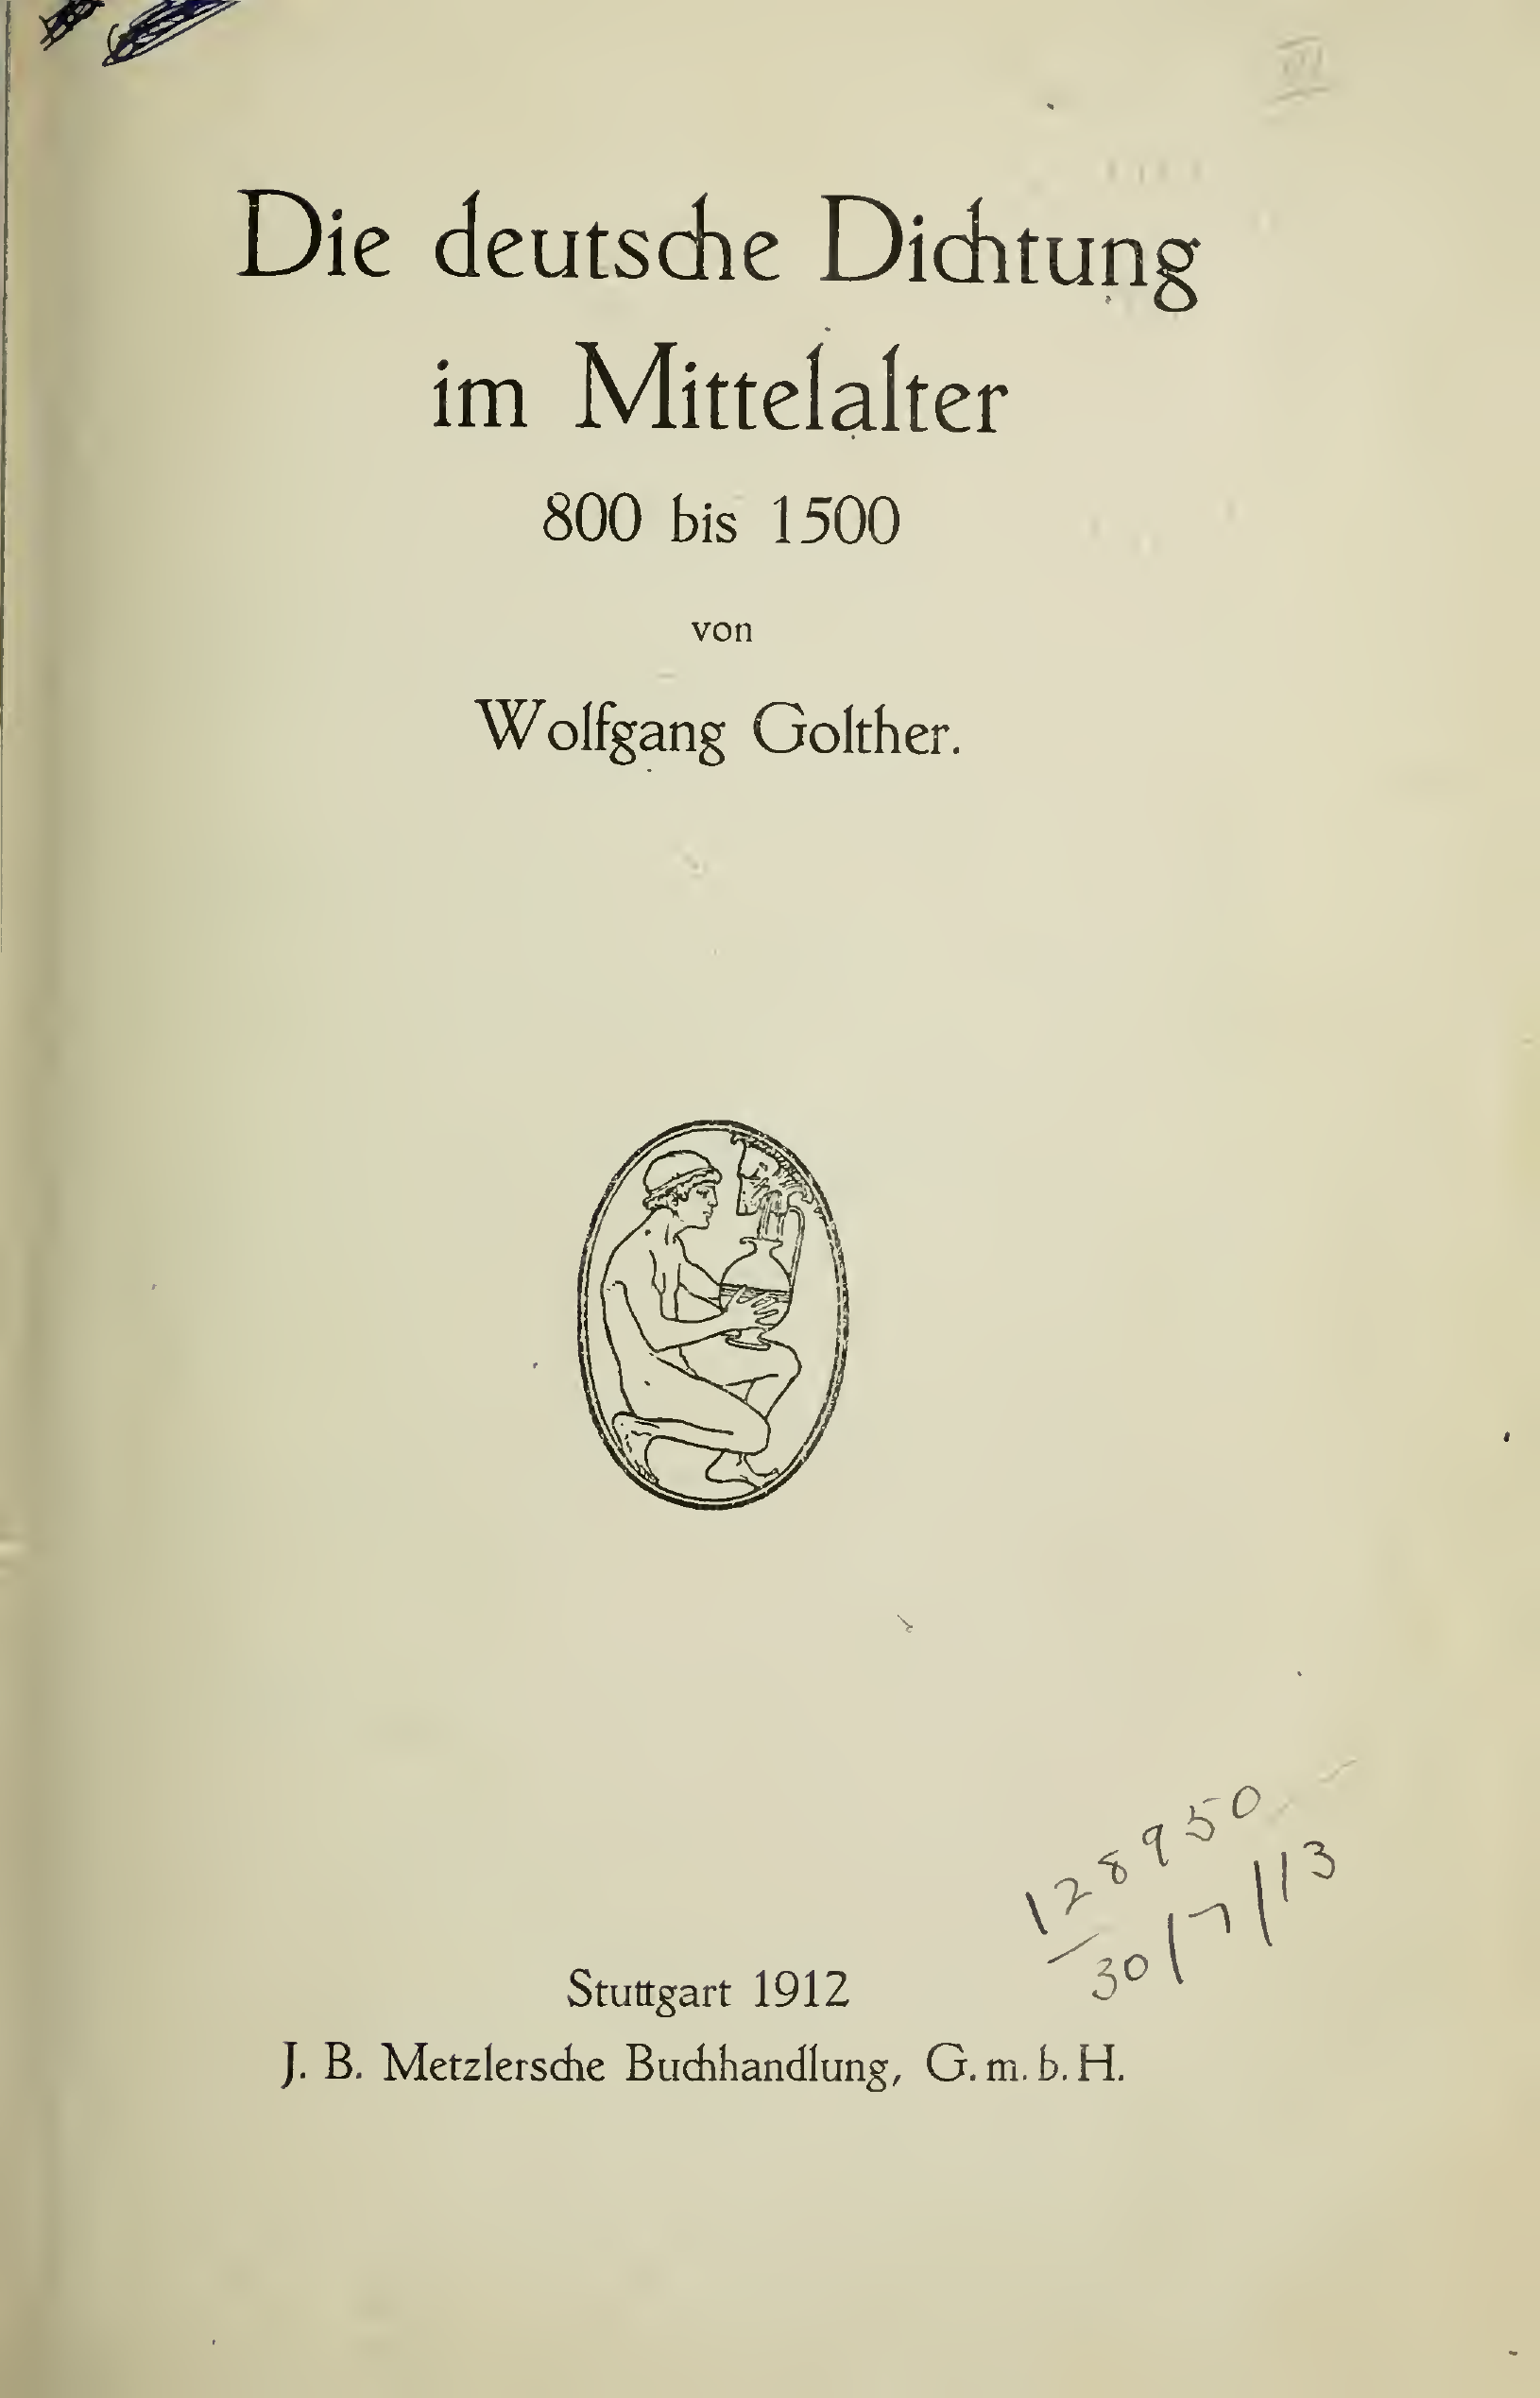 Die deutsche Dichtung
im Mittelalter
800 bis 1500
von
Wolfgang Golther.
128950
30/7/13
Stuttgart 1912
J. B. Metzlersche Buchhandlung, G. m. b. H.